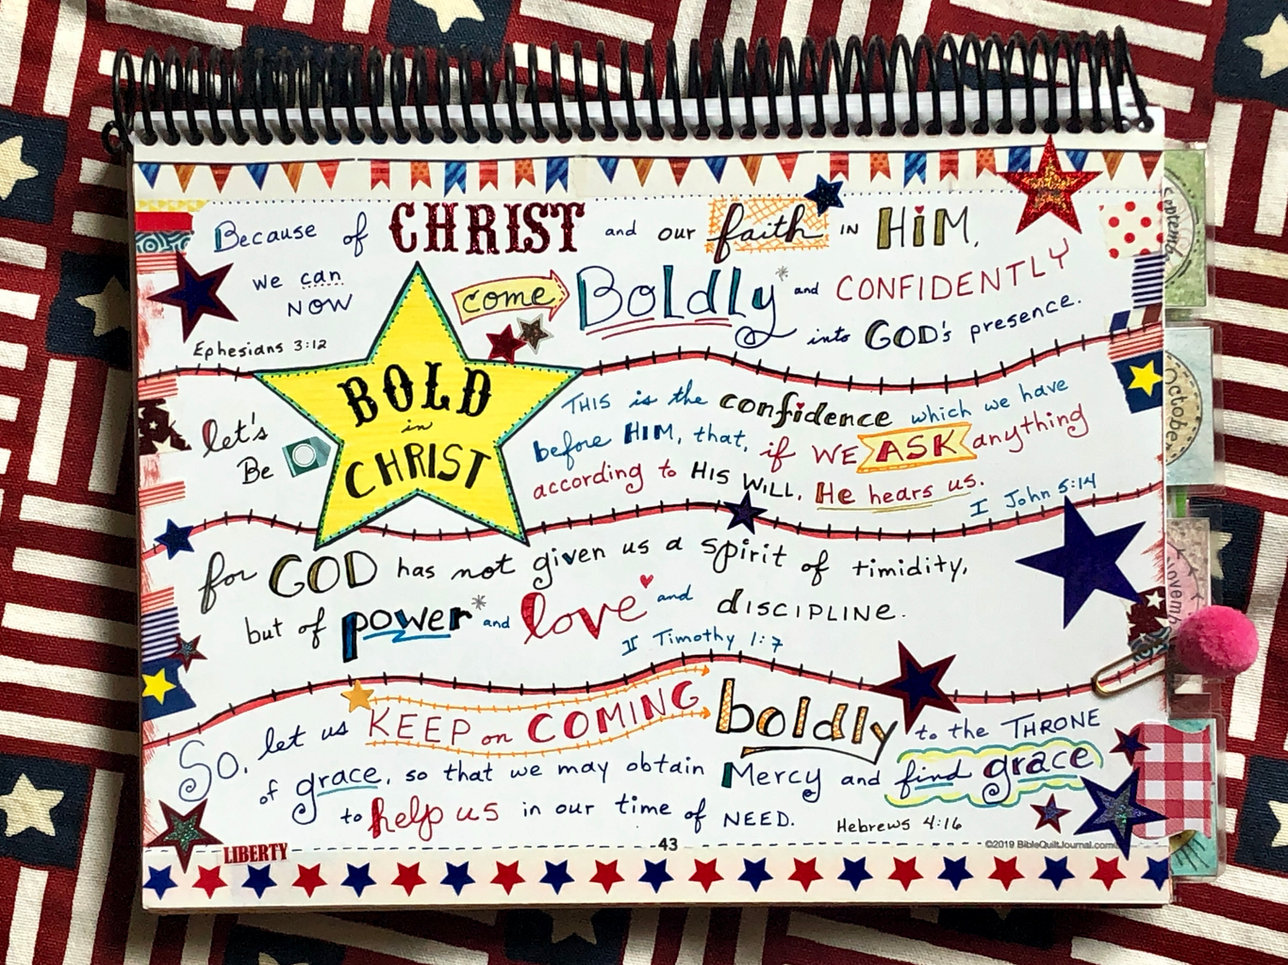 Because of CHRIST and our faith in HiM,
we can come Boldly* and CONFIDENTLY
NOW into GOD's presence.
Ephesians 3:12
BOLD
in
CHRIST
let's
Be
THIS is the confidence which we have
before HIM, that, if WE ASK anything
according to HIS WiLL, He hears us.
I John 5:14
for GOD has not given us a spirit of timidity,
but of power* and love and discipline.
II Timothy 1:7
So, let us KEEP on COMING boldly to the THRONE
of grace, so that we may obtain Mercy and find grace
to help us in our time of NEED.
Hebrews 4:16
LIBERTY
43
©2019 BibleQuiltJournal.com
October